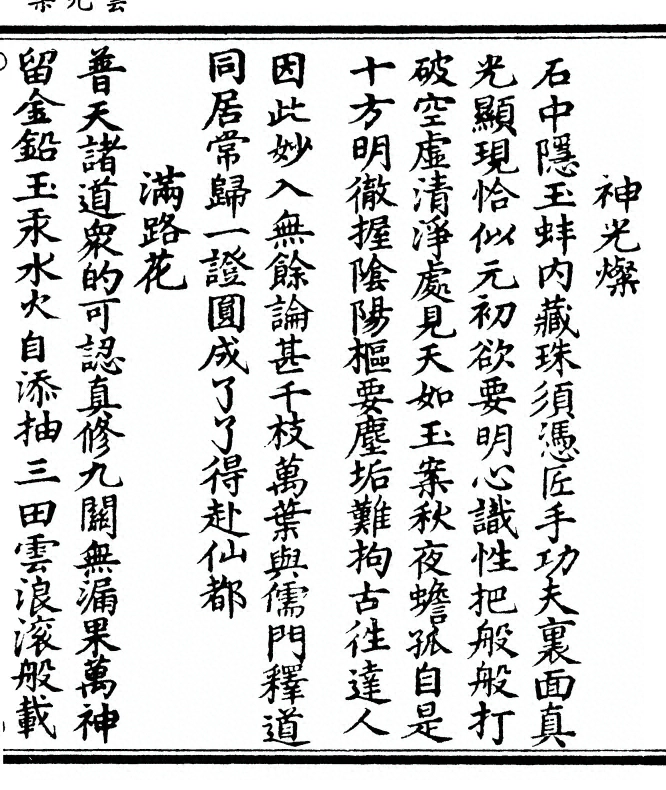 神光燦
石中隱玉蚌內藏珠須憑匠手功夫裏面真
光顯現恰似元初欲要明心識性把般般打
破空虛清淨處見天如玉案秋夜蟾孤自是
十方明徹握陰陽樞要塵垢難拘古徃達人
因此妙入無餘論甚千枝萬葉與儒門釋道
同居常歸一證圓成了了得赴仙都
滿路花
普天諸道衆的可認真修九關無漏果萬神
留金鉛玉汞水火自添抽三田雲浪滚般載